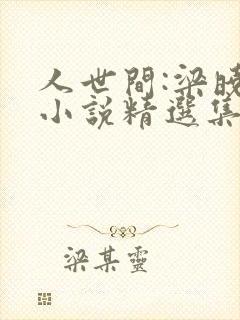 人世間:梁曉
小說精選集
梁某靈